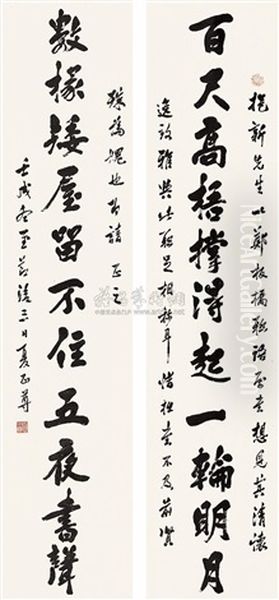 挹新先生以鄭板橋聯語屬書想見其清懷
百尺高梧撐得起一輪明月
逸致雅與此聯足相稱耳惜拙書不及前賢
殊為愧也即請正之
數椽矮屋留不住五夜書聲
壬戌冬至節後三日夏丏尊